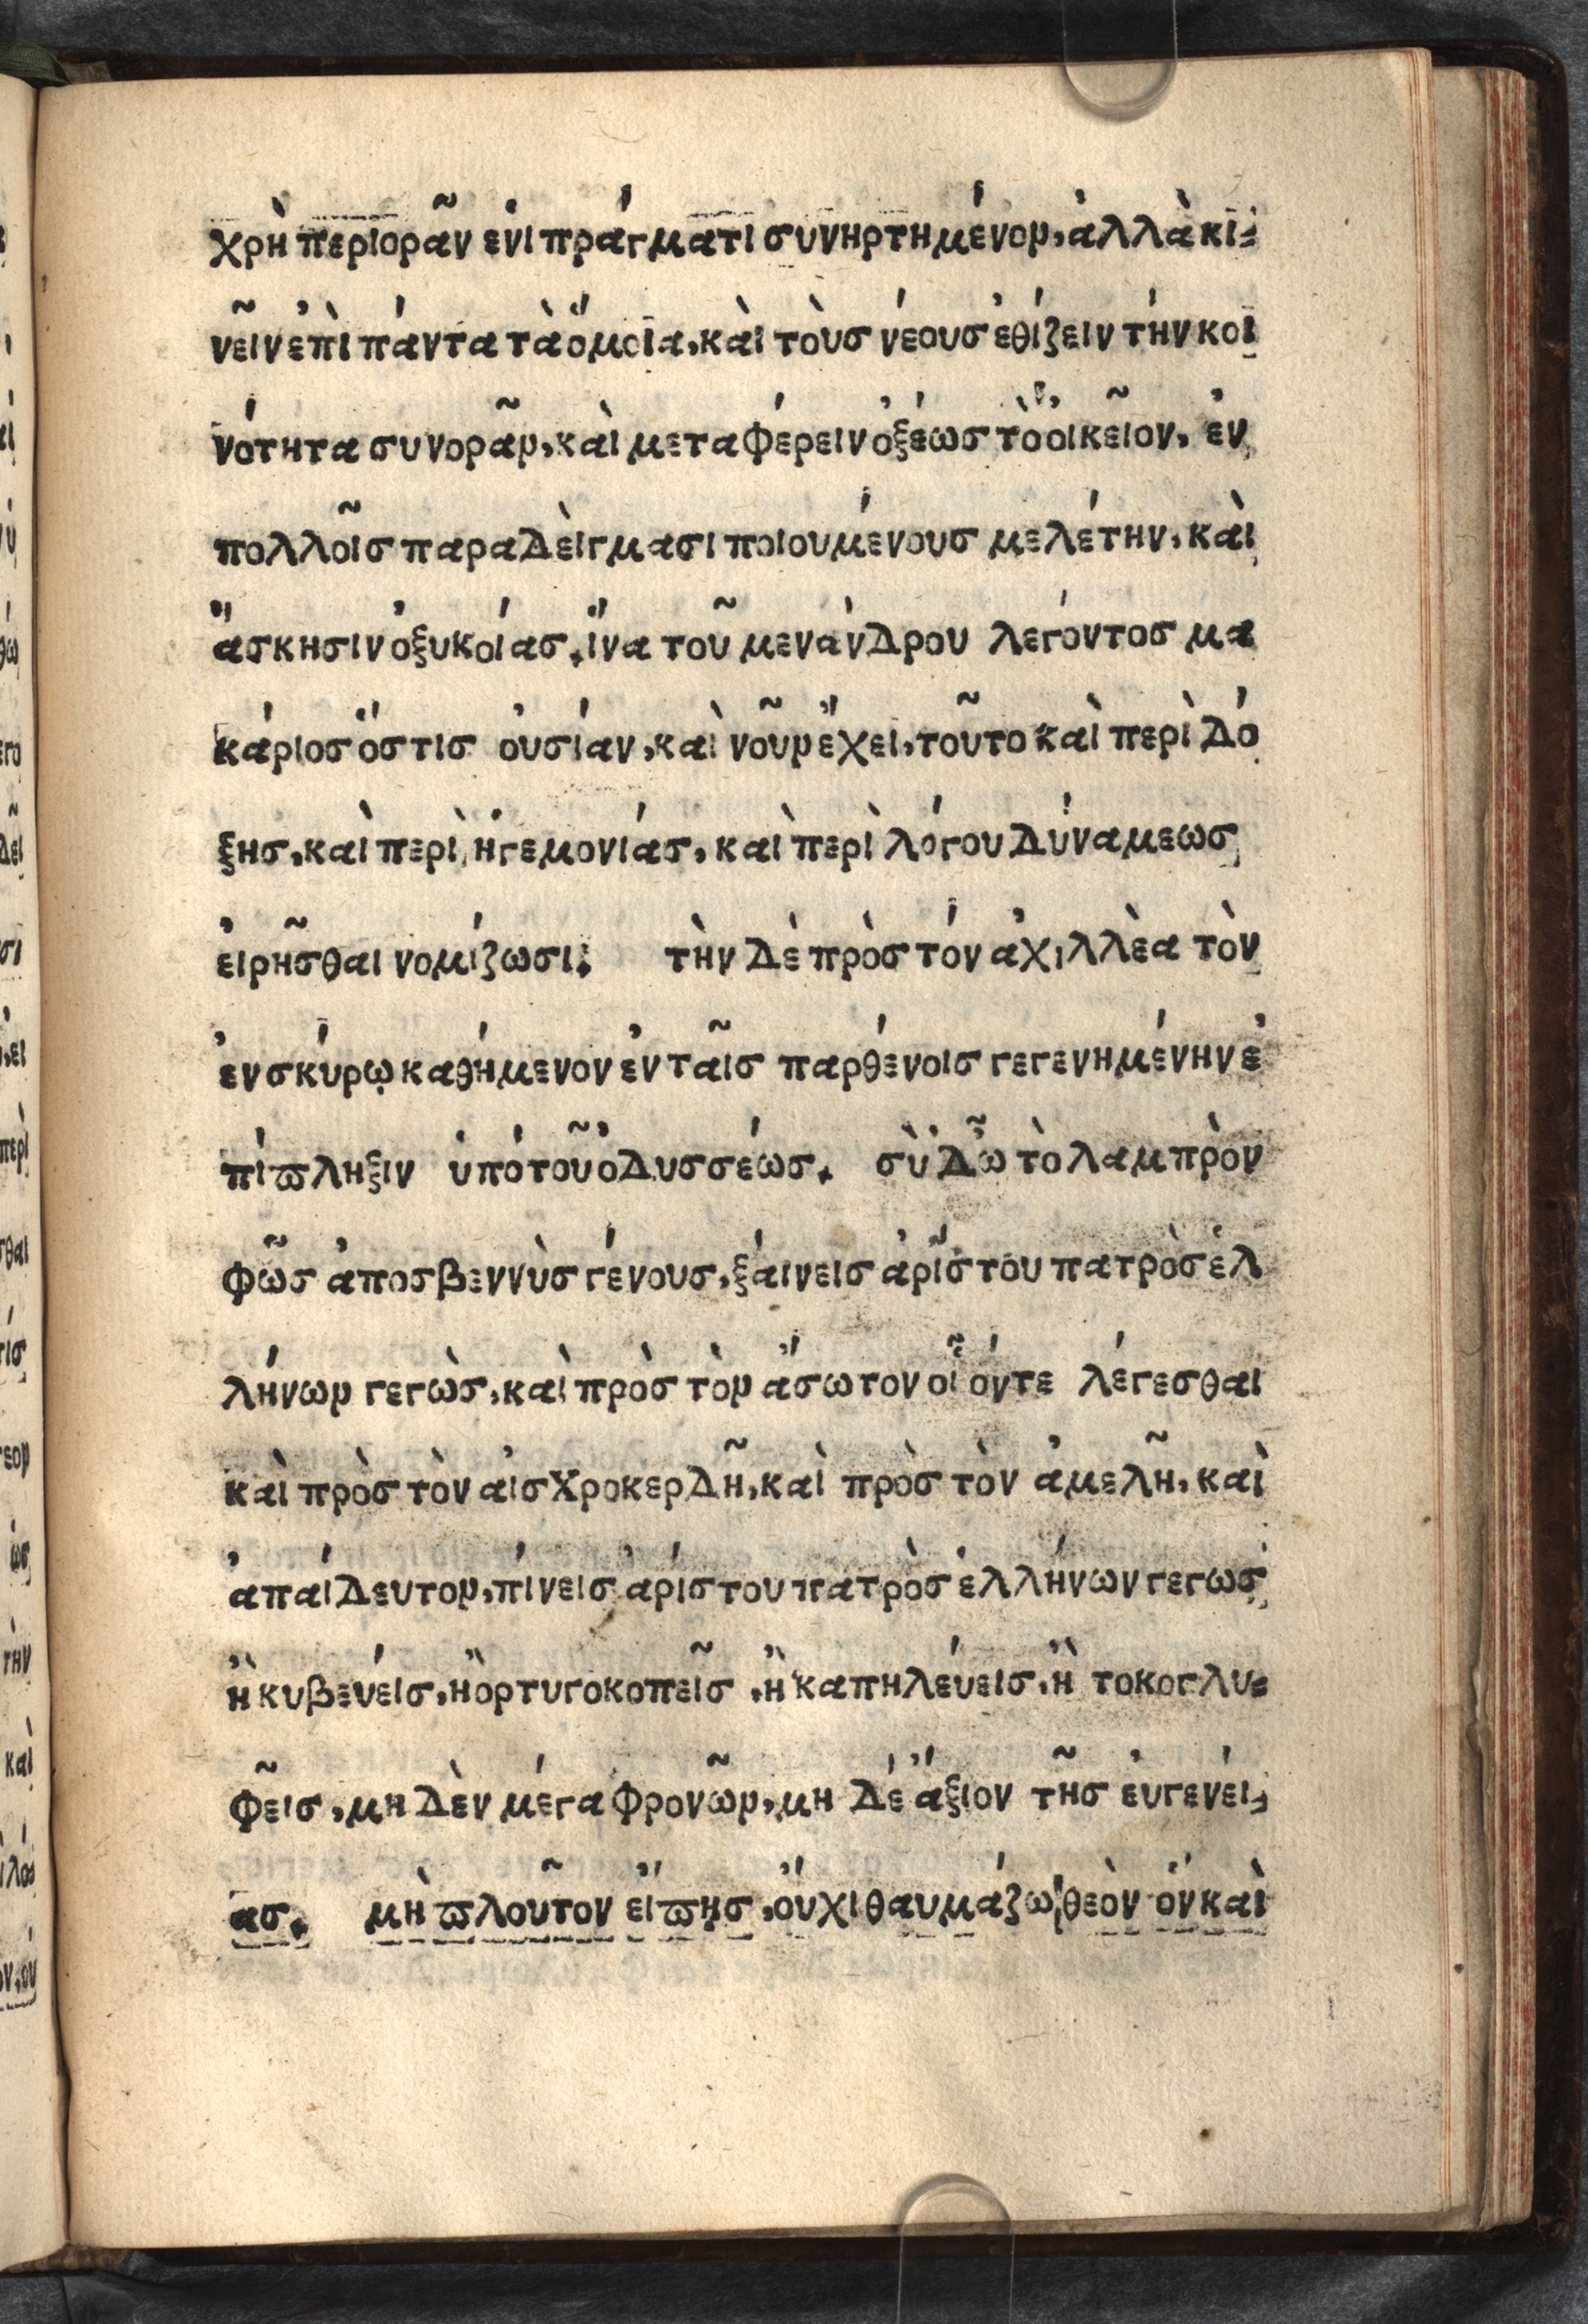 χρὴ περιορᾶν ἑνὶ πράγματι συνηρτημένον, ἀλλὰ κι-
νεῖν ἐπὶ πάντα τὰ ὅμοια, κὰι τὸυσ νέουσ ἐθίζειν τήν κοι
νότητα συνορᾶν, κὰι μεταφέρειν ὀξέωσ τὸ ὀικεῖον, ἐν
πολλοῖσ παραδὲιγμασι ποιουμένουσ μελέτην, κὰι
ἄσκησιν ὀξυκοίασ. ἵνα τοῦ μενάνδρου λεγόντοσ μα
κάριοσ ὅστισ ὀυσίαν, κὰι νοῦν ἔχει, τοῦτο κὰι περὶ δό
ξησ, κὰι περὶ ἡγεμονίασ, κὰι περὶ λόγου δύναμεωσ
ἐιρῆσθαι νομίζωσι. τὴν δὲ πρὸσ τόν ἀχιλλὲα τὸν
ἐν σκύρῳ καθήμενον ἐν ταῖσ παρθένοισ γεγενημένην ἐ
πίπληξιν ὑπό τοῦ ὀδυσσέωσ. σὺ δ'ὦ τὸ λαμπρὸν
φῶσ ἀποσβεννὺσ γένουσ, ξάινεισ ἀρίστου πατρὸσ ἑλ
λήνων γεγὼσ, κὰι πρὸσ τὸν ἄσωτον οἷόντε λέγεσθαι
κὰι πρὸσ τὸν ἀισχροκερδῆ, κὰι πρὸσ τὸν ἀμελῆ, κὰι
ἀπάιδευτον, πίνεισ ἀρίστου πατρὸσ ἑλλήνων γεγωσ
ἢ κυβεύεισ, ἢ ὀρτυγοκοπεῖσ, ἢ καπηλεύεισ, ἢ τοκογλυ-
φεῖσ, μηδὲν μέγα φρονῶν, μηδέ ἄξιον τῆσ ἐυγενεί-
ασ. μὴ πλοῦτον εἴπῃσ, ὄυχι θαυμάζω θεὸν ὅν κὰι